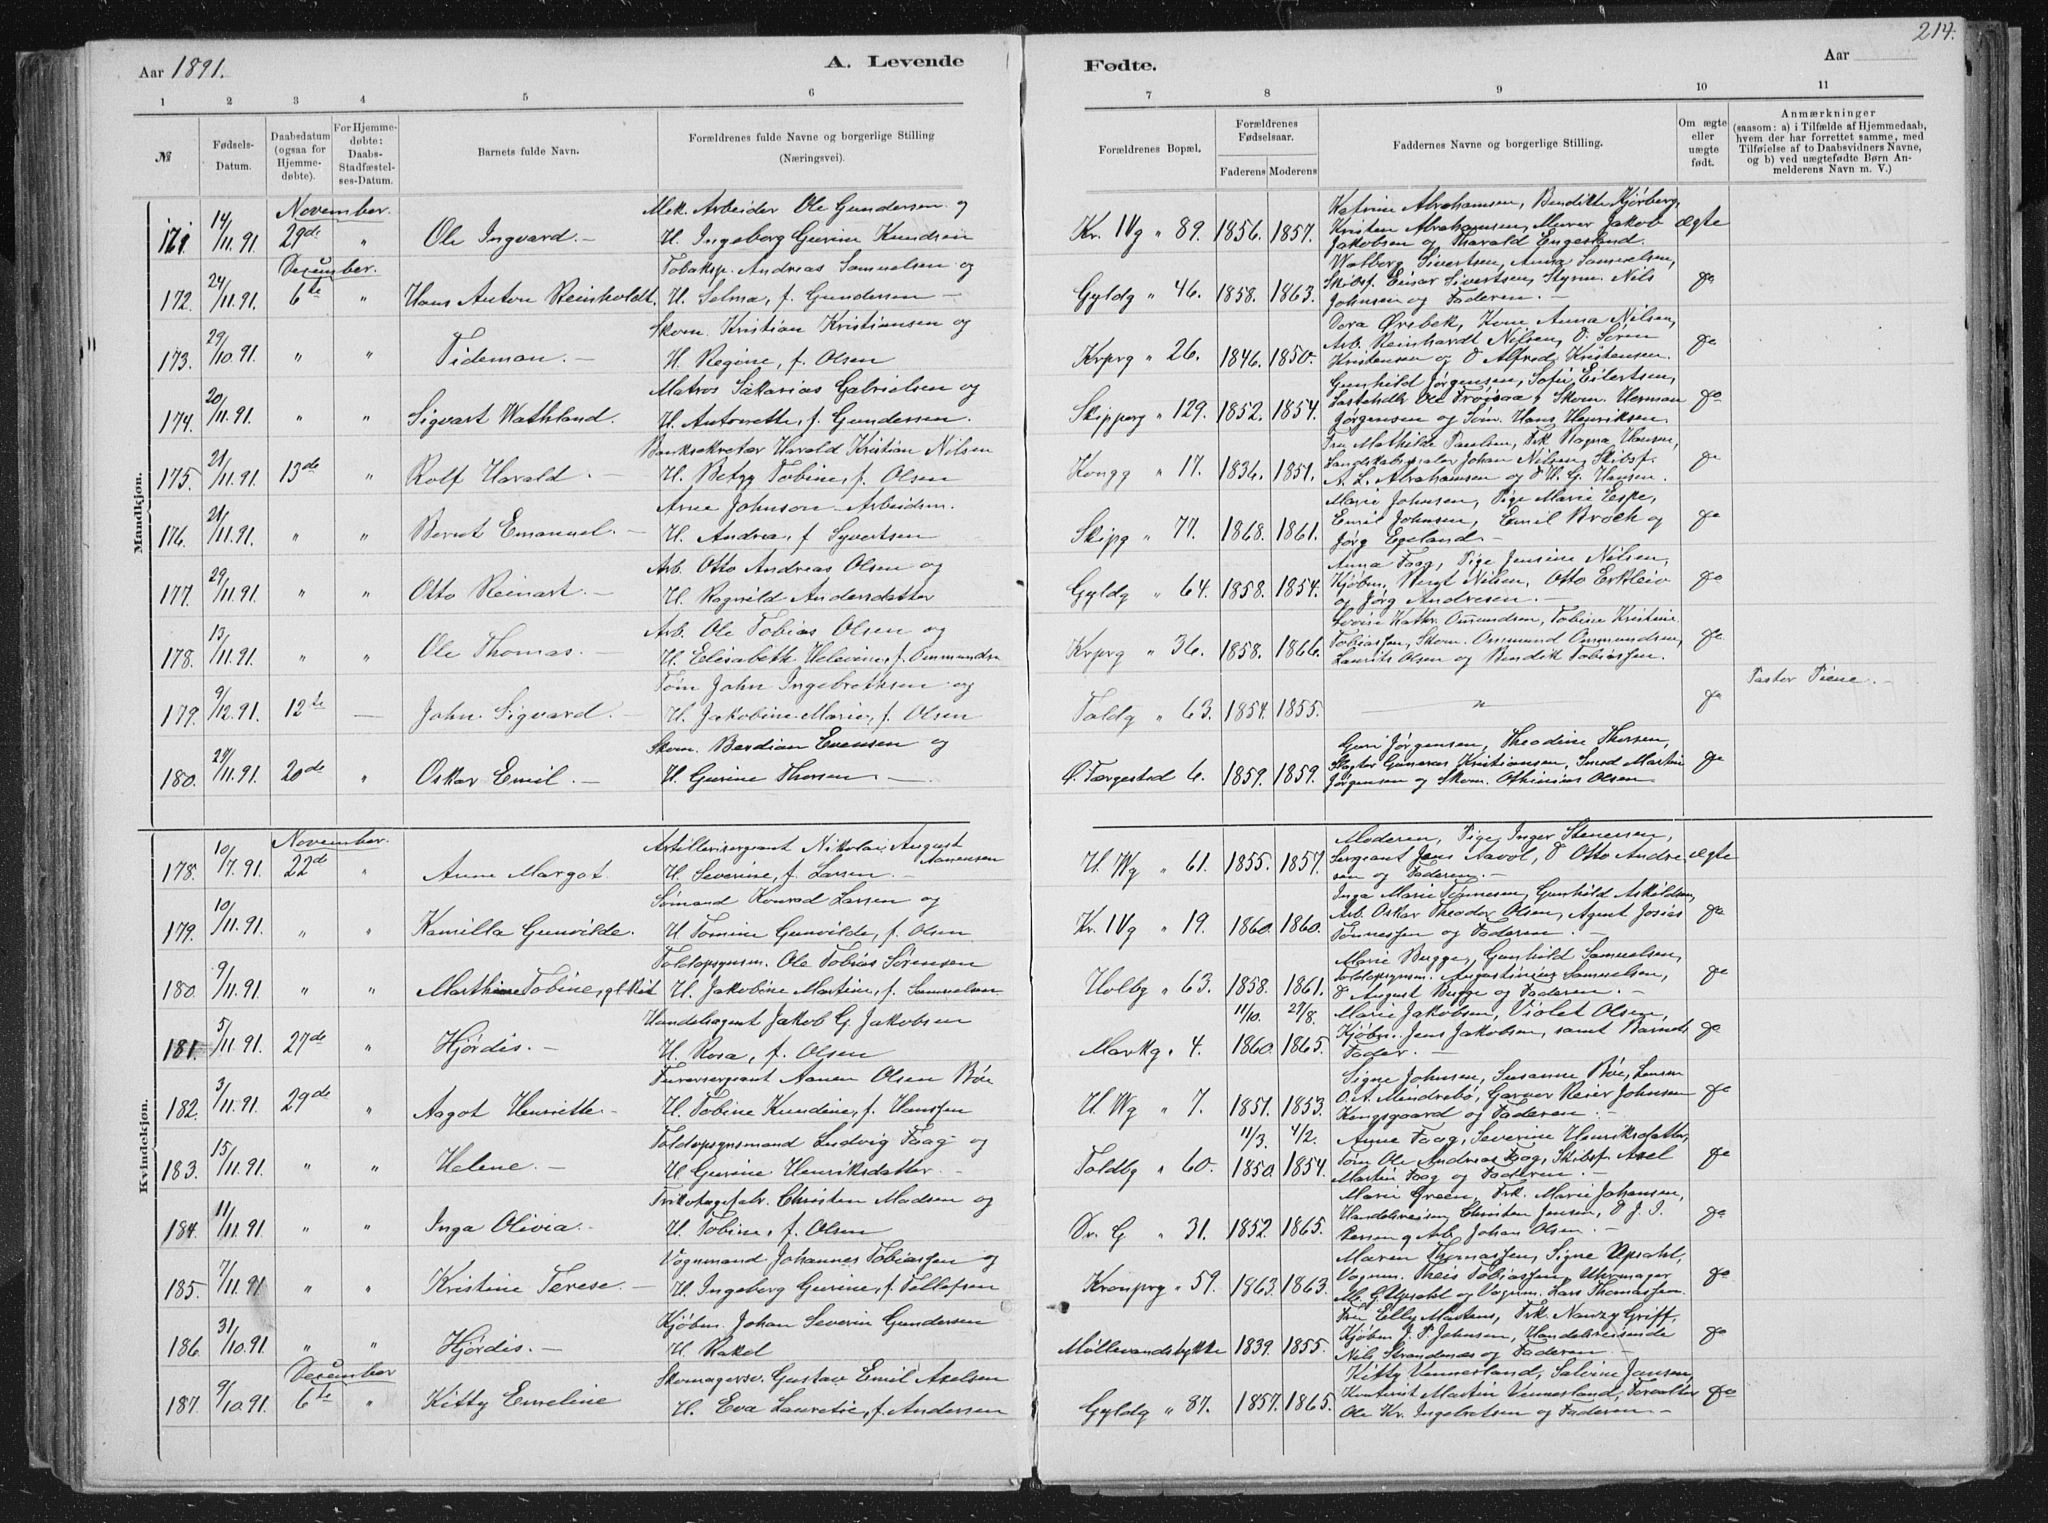 214.
Aar 1891.
A. Levende
Fødte.
Aar
1 2 3 4 5 6 7 8 9 10 11
№
Fødsels-Datum.
Daabsdatum (ogsaa for Hjemmedøbte).
For Hjemmedøbte: Daabs-Stadfæstelses-Datum.
Barnets fulde Navn.
Forældrenes fulde Navne og borgerlige Stilling (Næringsvei).
Forældrenes Bopæl.
Forældrenes Fødselsaar.
Faderens Moderens
Faddernes Navne og borgerlige Stilling.
Om ægte eller uægte født.
Anmærkninger
(saasom: a) i Tilfælde af Hjemmedaab, hvem der har forrettet samme, med Tilføielse af to Daabsvidners Navne, og b) ved uægtefødte Børn Anmelderens Navn m. V.)
Mandkjøn.
November.
171 14/11.91. 29de " Ole Ingvard. — Mek. Arbeider Ole Gundersen og
H. Ingeborg Gurine Knudsen
Kr. IVg " 89. 1856. 1857. Katrine Abrahamsen, Bendikte Kjørberg,
Kristen Abrahamsen, Murer Jakob
Jakobsen og Tharald Engesland. ægte
Desember.
172. 24/11.91. 6te " Hans Anton Reinholdt. Tobaksp. Andreas Samuelsen og
H. Selma, f. Gundersen —
Gyldg " 46. 1858. 1863. Walborg Sivertsen, Anna Samuelsen,
Skibsf. Einar Sivertsen, Styrm. Nils
Johnsen og Faderen. — do
173. 29/10.91. " " Tideman. — Skom. Kristian Kristiansen og
H. Regine, f. Olsen
Krprg " 26. 1846. 1850. Dora Ørebek, Kone Anna Nilsen,
Arb. Reinhardt Nilsen, D. Søren
Kristensen og D Alfred Kristensen. do
174. 20/11.91. " " Sigvart Wathland. Matros Sakarias Gabrielsen og
H. Antonette, f. Gundersen.
Skipperg " 129. 1852. 1854. Gunhild Jørgensen, Sofie Eilertsen,
Ole Frøisaa, Skom. Herman
Jørgensen og Søm. Hans Henriksen. do
175. 21/11.91. 13de " Rolf Harald. Banksekretær Harald Kristian Nilsen
H. Betzy Tobine, f. Olsen
Kongg " 17. 1836. 1851. Fru Mathilde Paulsen, Frk. Ragna Hansen,
Landskabsmaler Johan Nilsen, Skibsf.
A. L. Abrahamsen og D H. G. Hansen. do
176. 21/11.91. " " Bernt Emanuel. — Arne Johnson Arbeidsm.
H. Andrea, f Syvertsen
Skipg " 77. 1868. 1861. Marie Johnsen, Pige Marie Espe,
Emil Johnsen, Emil Broch og
Jørg Egeland. — do
177. 29/11.91. " " Otto Reinart. — Arb. Otto Andreas Olsen og
H. Ragnild Andersdatter
Gyldg " 64. 1858. 1854. Anna Faag, Pige Jensine Nilsen,
Kjøbm. Bergt Nilsen, Otto Erkleiv
og Jørg Andresen. — do
178. 13/11.91. " " Ole Thomas. — Arb. Ole Tobias Olsen og
H. Elisabeth Helevine, f. Ommundsn
Krprg " 36. 1858. 1866. Lovise Kathr. Omundsen, Tobine Kristine
Tobiassen, Skom. Ommund Ommundsen,
Laurits Olsen og Bendik Tobiassen. do
179. 9/12.91. 12te — John Sigvard. — Tøm John Ingebrethsen og
H. Jakobine Marie, f. Olsen
Toldg " 63. 1854. 1855. — " — do Pastor Piene. —
180. 27/11.91. 20de " Oskar Emil. — Skom. Berdian Evensen og
H. Gurine Thorsen —
O. Færgestad 6. 1859. 1859. Guri Jørgensen, Theodine Thorsen,
Slagter Gunerus Kristiansen, Smed Martin
Jørgensen og Skom. Othinius Olsen do
Kvindekjøn.
November.
178. 10/7.91. 22de " Anne Margot. Artillerisergeant Nikolai August Aanensen
H. Severine, f. Larsen. —
H. Wg " 61. 1855. 1857. Moderen, Pige Inger Stenersen,
Sergeant Jens Aavol, D Otto Andre-
sen og Faderen. — ægte
179. 10/11.91. " " Kamilla Gunvilde. Sømand Konrad Larsen og
H Tomine Gunvilde, f. Olsen
Kr. IVg " 19. 1860. 1860. Inga Marie Tønnesen, Gunhild Askildsen,
Arb. Oskar Theodor Olsen, Agent Josias
Tønnessen og Faderen. — do
180. 9/11.91. " " Marthine Tobine, Toldopsynsm. Ole Tobias Sørensen
H. Jakobine Martine, f. Samuelsen
Holbg " 63. 1858. 1861. Marie Bugge, Gunhild Samuelsen,
Toldopsynsm. Augustinius Samuelsen,
D August Bugge og Faderen. — do
181. 5/11.91. 27de " Hjørdis. — Handelsagent Jakob G. Jakobsen
H. Rosa, f. Olsen
Markg " 4. 11/10. 1860. 27/8. 1865. Marie Jakobsen, Violet Olsen,
Kjøbm. Jens Jakobsen, samt Barnets
Fader. — do
182. 3/11.91. 29de " Aagot Henriette — Furersergeant Aanen Olsen Bøe
H. Tobine Kundine, f. Hanssen
H. Wg " 7. 1851. 1853. Signe Johnsen, Susanne Bøe, Lensm
O. A. Mindrebø, Garver Reier Johnsen
Kongsgaard og Faderen. — do
183. 15/11.91. " " Helene. — Toldopsynsmand Ludvig Faag og
H Gurine Henriksdatter. —
Toldbg " 60. 11/3. 1850. 4/2. 1854. Anne Faag, Severine Henriksdatter,
Tøm Ole Andreas Faag, Skibsf. Axel
Martin Faag og Faderen. — do
184. 11/11.91. " " Inga Olivia. — Trikotagefabr. Christen Madsen og
H. Tobine, f. Olsen
Dr. G " 31. 1852. 1865. Marie Green, Frk. Marie Johansen,
Handelsreisen. Christen Jensen, D J. I.
Persen og Arb. Johan Olsen. — do
185. 7/11.91 " " Kristine Terese. — Vognmand Johannes Tobiassen og
H. Ingeborg Gurine, f. Tellefsen
Kronprg " 59. 1863. 1863. Maren Thomassen, Signe Upsahl,
Vognm. Theis Tobiassen, Uhrmager
M. G. Upsahl og Vognm. Lars Thomassen. do
186. 31/10.91. " " Hjørdis. — Kjøbm. Johan Severin Gundersen
H Rakel
Møllevandsbykke 1839. 1855. Fru Elly Martens, Frk. Nanzy Griff,
Kjøbm J. P. Johnsen, Handelsreisende
Nils Strandenæs og Faderen — do
Desember
187. 9/10.91. 6te " Kitty Emeline Skomagersv. Gustav Emil Axelsen
H. Eva Lauretie, f. Andersen
Gyldg " 87. 1857. 1865. Kitty Vennesland, Saline Jansen,
Kontorist Martin Vennesland, Forvalter
Ole Kr. Ingebretsen og Faderen — do